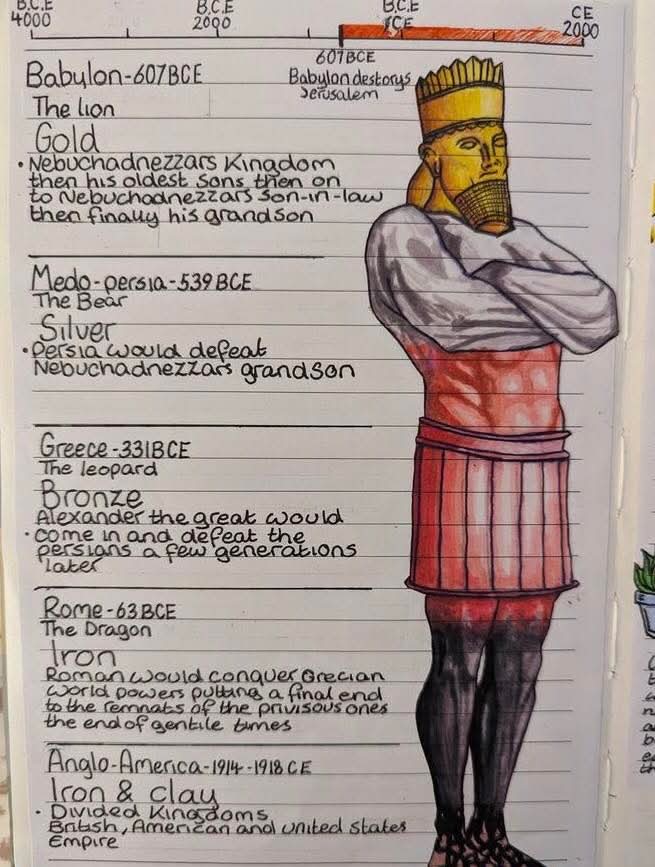 B.C.E
4000
B.C.E
2000
B.C.E
CE
CE
2000
607BCE
Babylon destorys
Jerusalem
Babylon-607BCE
The lion
Gold
• Nebuchadnezzars Kingdom
then his oldest sons then on
to Nebuchadnezzars son-in-law
then finally his grandson
Medo-persia-539BCE
The Bear
Silver
• Persia would defeat
Nebuchadnezzars grandson
Greece-331BCE
The leopard
Bronze
Alexander the great would
• come in and defeat the
persians a few generations
later
Rome-63BCE
The Dragon
Iron
Roman would conquer Grecian
world powers putting a final end
to the remnats of the privisous ones
the end of gentile times
Anglo-America-1914-1918CE
Iron & clay
• Divided Kingdoms
British, American and united states
Empire